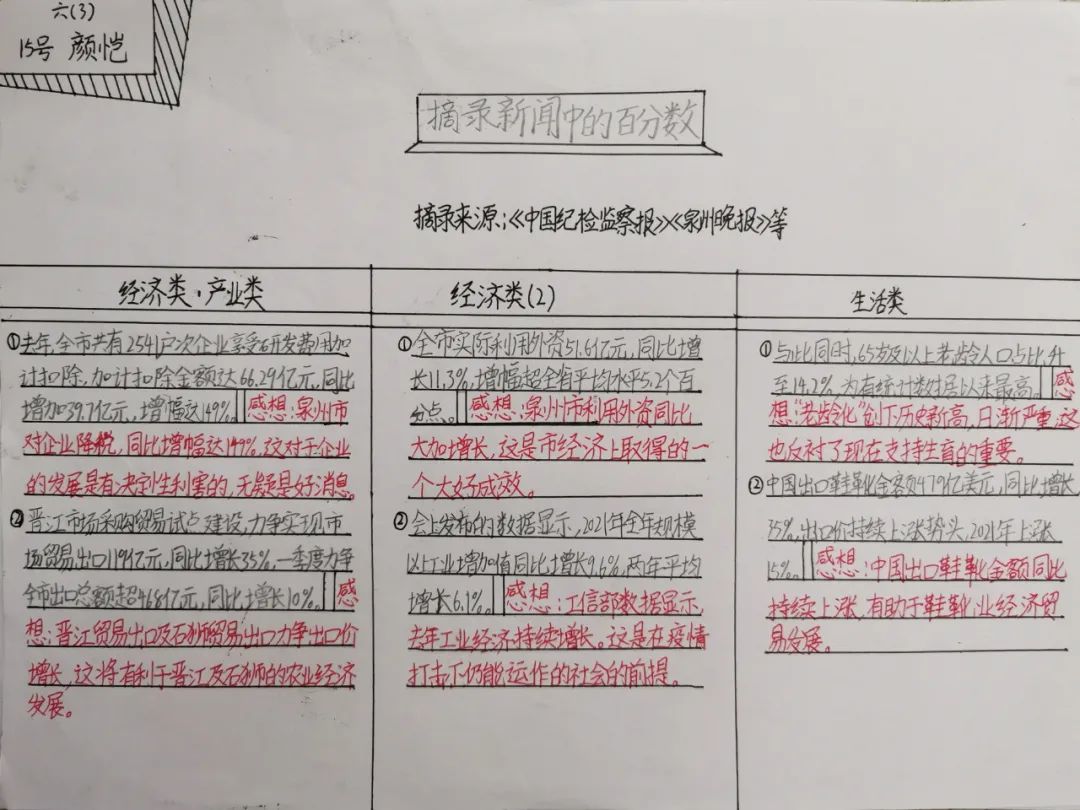 六(3)
15号 颜恺
摘录新闻中的百分数
摘录来源:《中国纪检监察报》《泉州晚报》等
经济类·产业类
①去年,全市共有2541户次企业享受研发费用加
计扣除,加计扣除金额达66.29亿元,同比
增加39.7亿元,增幅达149%。感想:泉州市
对企业降税,同比增幅达149%。这对于企业
的发展是有决定性利害的,无疑是好消息。
②晋江市场采购贸易试点建设,力争实现市
场贸易出口119亿元,同比增长35%,一季度力争
全市出口总额超468亿元,同比增长10%。感
想:晋江贸易出口及石狮贸易出口力争出口价
增长,这将有利于晋江及石狮的农业经济
发展。
经济类(2)
①全市实际利用外资51.6亿元,同比增
长11.3%,增幅超全省平均水平5.2个百
分点。感想:泉州市利用外资同比
大加增长,这是市经济上取得的一
个大好成效。
②会上发布的数据显示,2021年全年规模
以上工业增加值同比增长9.6%,两年平均
增长6.1%。感想:工信部数据显示,
去年工业经济持续增长。这是在疫情
打击下仍能运作的社会的前提。
生活类
①与此同时,65岁及以上老龄人口占比升
至14.2%,为有统计数据以来最高。感
想:"老龄化"创下历史新高,日渐严重,这
也反衬了现在支持生育的重要。
②中国出口鞋靴金额479亿美元,同比增长
35%,出口价持续上涨势头,2021年上涨
15%。感想:中国出口鞋靴金额同比
持续上涨,有助于鞋靴业经济贸
易发展。